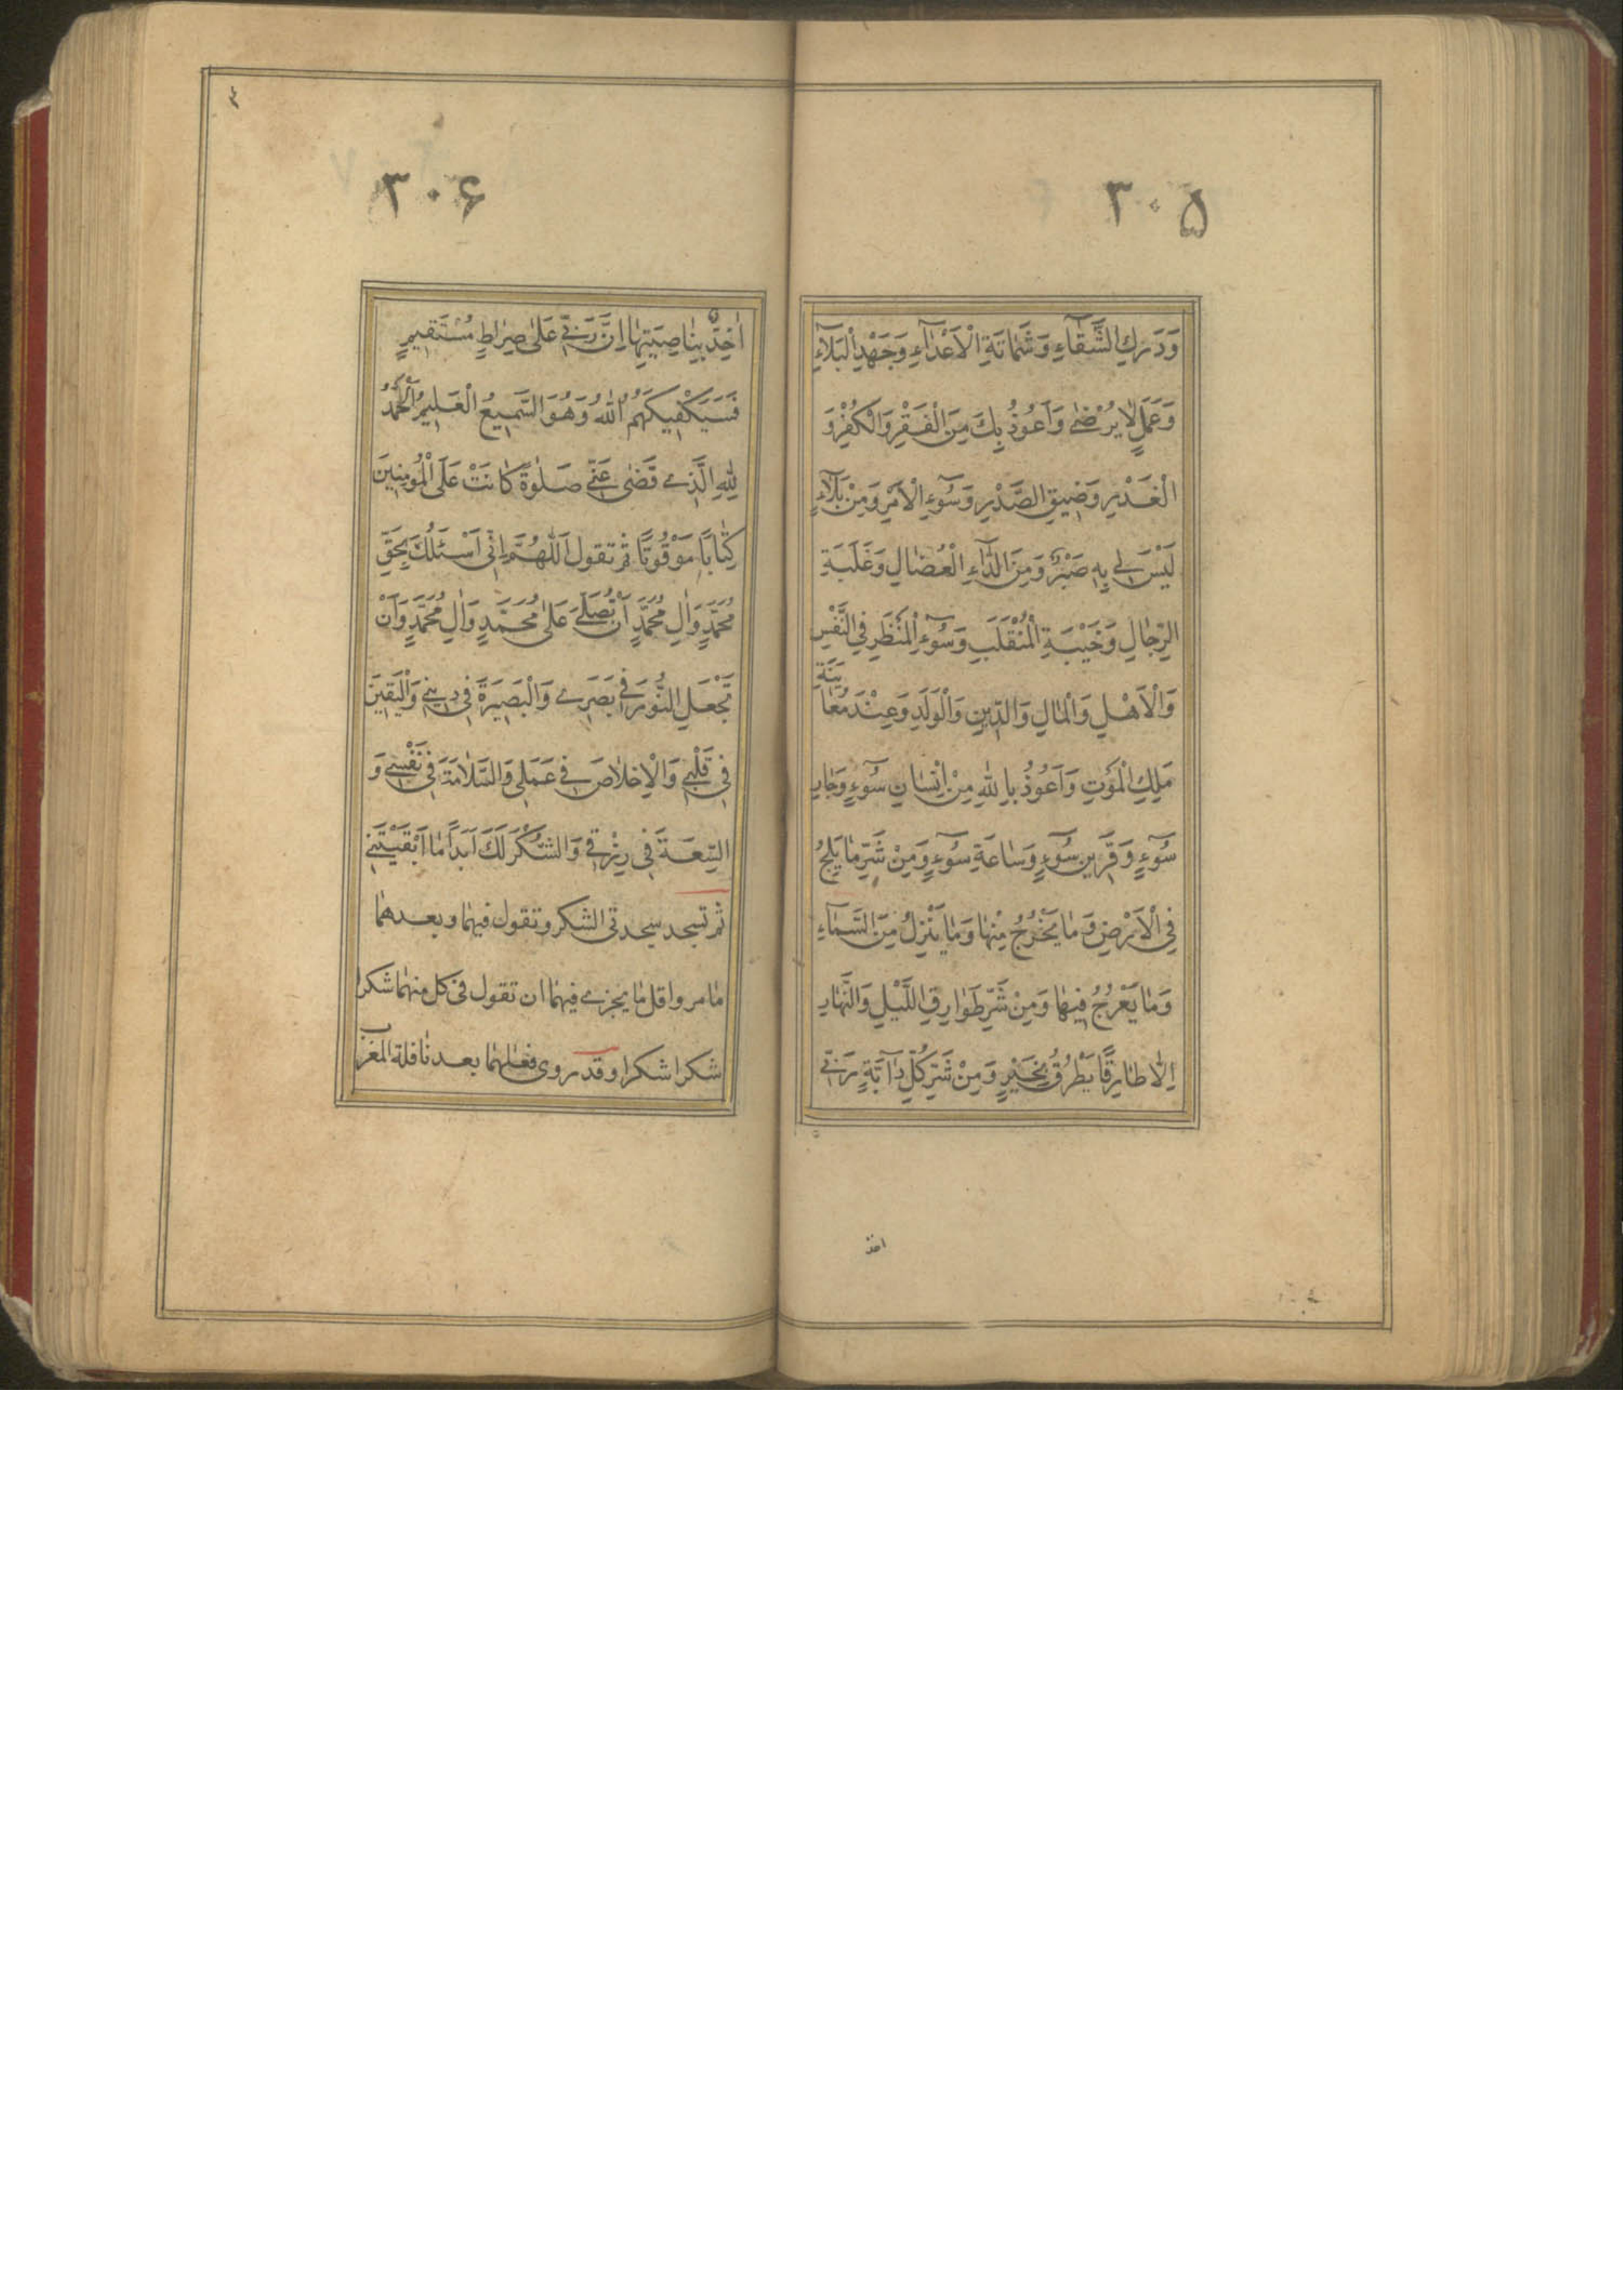 ۳۰۵
وَدَرَكِ الشَّقٰآءِ وَشَمٰاتَةِ الْاَعْدٰآءِ وَجَهْدِ الْبَلآءِ
وَعَمَلٍ لٰا يُرْضٰى وَاَعُوذُ بِكَ مِنَ الْفَقْرِ وَالْكُفْرِ وَ
الْغَدْرِ وَضِيقِ الصَّدْرِ وَسُوٓءِ الْاَمْرِ وَمِنْ بَلآءٍ
لَيْسَ لِي بِهِ صَبْرٌ وَمِنَ الدّٰآءِ الْعُضٰالِ وَغَلَبَةِ
الرِّجٰالِ وَخَيْبَةِ الْمُنْقَلَبِ وَسُوٓءِ الْمَنْظَرِ فِي النَّفْسِ
وَالْاَهْلِ وَالْمٰالِ وَالدِّينِ وَالْوَلَدِ وَعِنْدَ مُعٰايَنَةِ
مَلِكِ الْمَوْتِ وَاَعُوذُ بِاللّٰهِ مِنْ اِنْسٰانِ سُوٓءٍ وَجٰارِ
سُوٓءٍ وَقَرِينِ سُوٓءٍ وَسٰاعَةِ سُوٓءٍ وَمِنْ شَرِّ مٰا يَلِجُ
فِي الْاَرْضِ وَمٰا يَخْرُجُ مِنْهٰا وَمٰا يَنْزِلُ مِنَ السَّمٰآءِ
وَمٰا يَعْرُجُ فِيهٰا وَمِنْ شَرِّ طَوٰارِقِ اللَّيْلِ وَالنَّهٰارِ
اِلّٰا طٰارِقًا يَطْرُقُ بِخَيْرٍ وَمِنْ شَرِّ كُلِّ دٰآبَّةٍ رَبِّي
اخذ
۳۰۶
اٰخِذٌ بِنٰاصِيَتِهٰا اِنَّ رَبِّي عَلىٰ صِرٰاطٍ مُسْتَقِيمٍ
فَسَيَكْفِيكَهُمُ اللّٰهُ وَهُوَ السَّمِيعُ الْعَلِيمُ اَلْحَمْدُ
لِلّٰهِ الَّذِي قَضٰى عَنِّي صَلٰوةً كٰانَتْ عَلَى الْمُؤْمِنِينَ
كِتٰابًا مَوْقُوتًا ثم تقول اَللّٰهُمَّ اِنِّي اَسْئَلُكَ بِحَقِّ
مُحَمَّدٍ وَاٰلِ مُحَمَّدٍ اَنْ تُصَلِّيَ عَلىٰ مُحَمَّدٍ وَاٰلِ مُحَمَّدٍ وَاَنْ
تَجْعَلَ النُّورَ فِي بَصَرِي وَالْبَصِيرَةَ فِي دِينِي وَالْيَقِينَ
فِي قَلْبِي وَالْاِخْلٰاصَ فِي عَمَلِي وَالسَّلٰامَةَ فِي نَفْسِي وَ
السِّعَةَ فِي رِزْقِي وَالشُّكْرَ لَكَ اَبَدًا مٰا اَبْقَيْتَنِي
ثم تسجد سجدتى الشكر وتقول فيهما وبعدهما
مٰا مر واقل مٰا يجزي فيهما ان تقول فى كل منهما شكرا
شكرا شكرا وقد روى فعلهما بعد نٰافلة المغرب